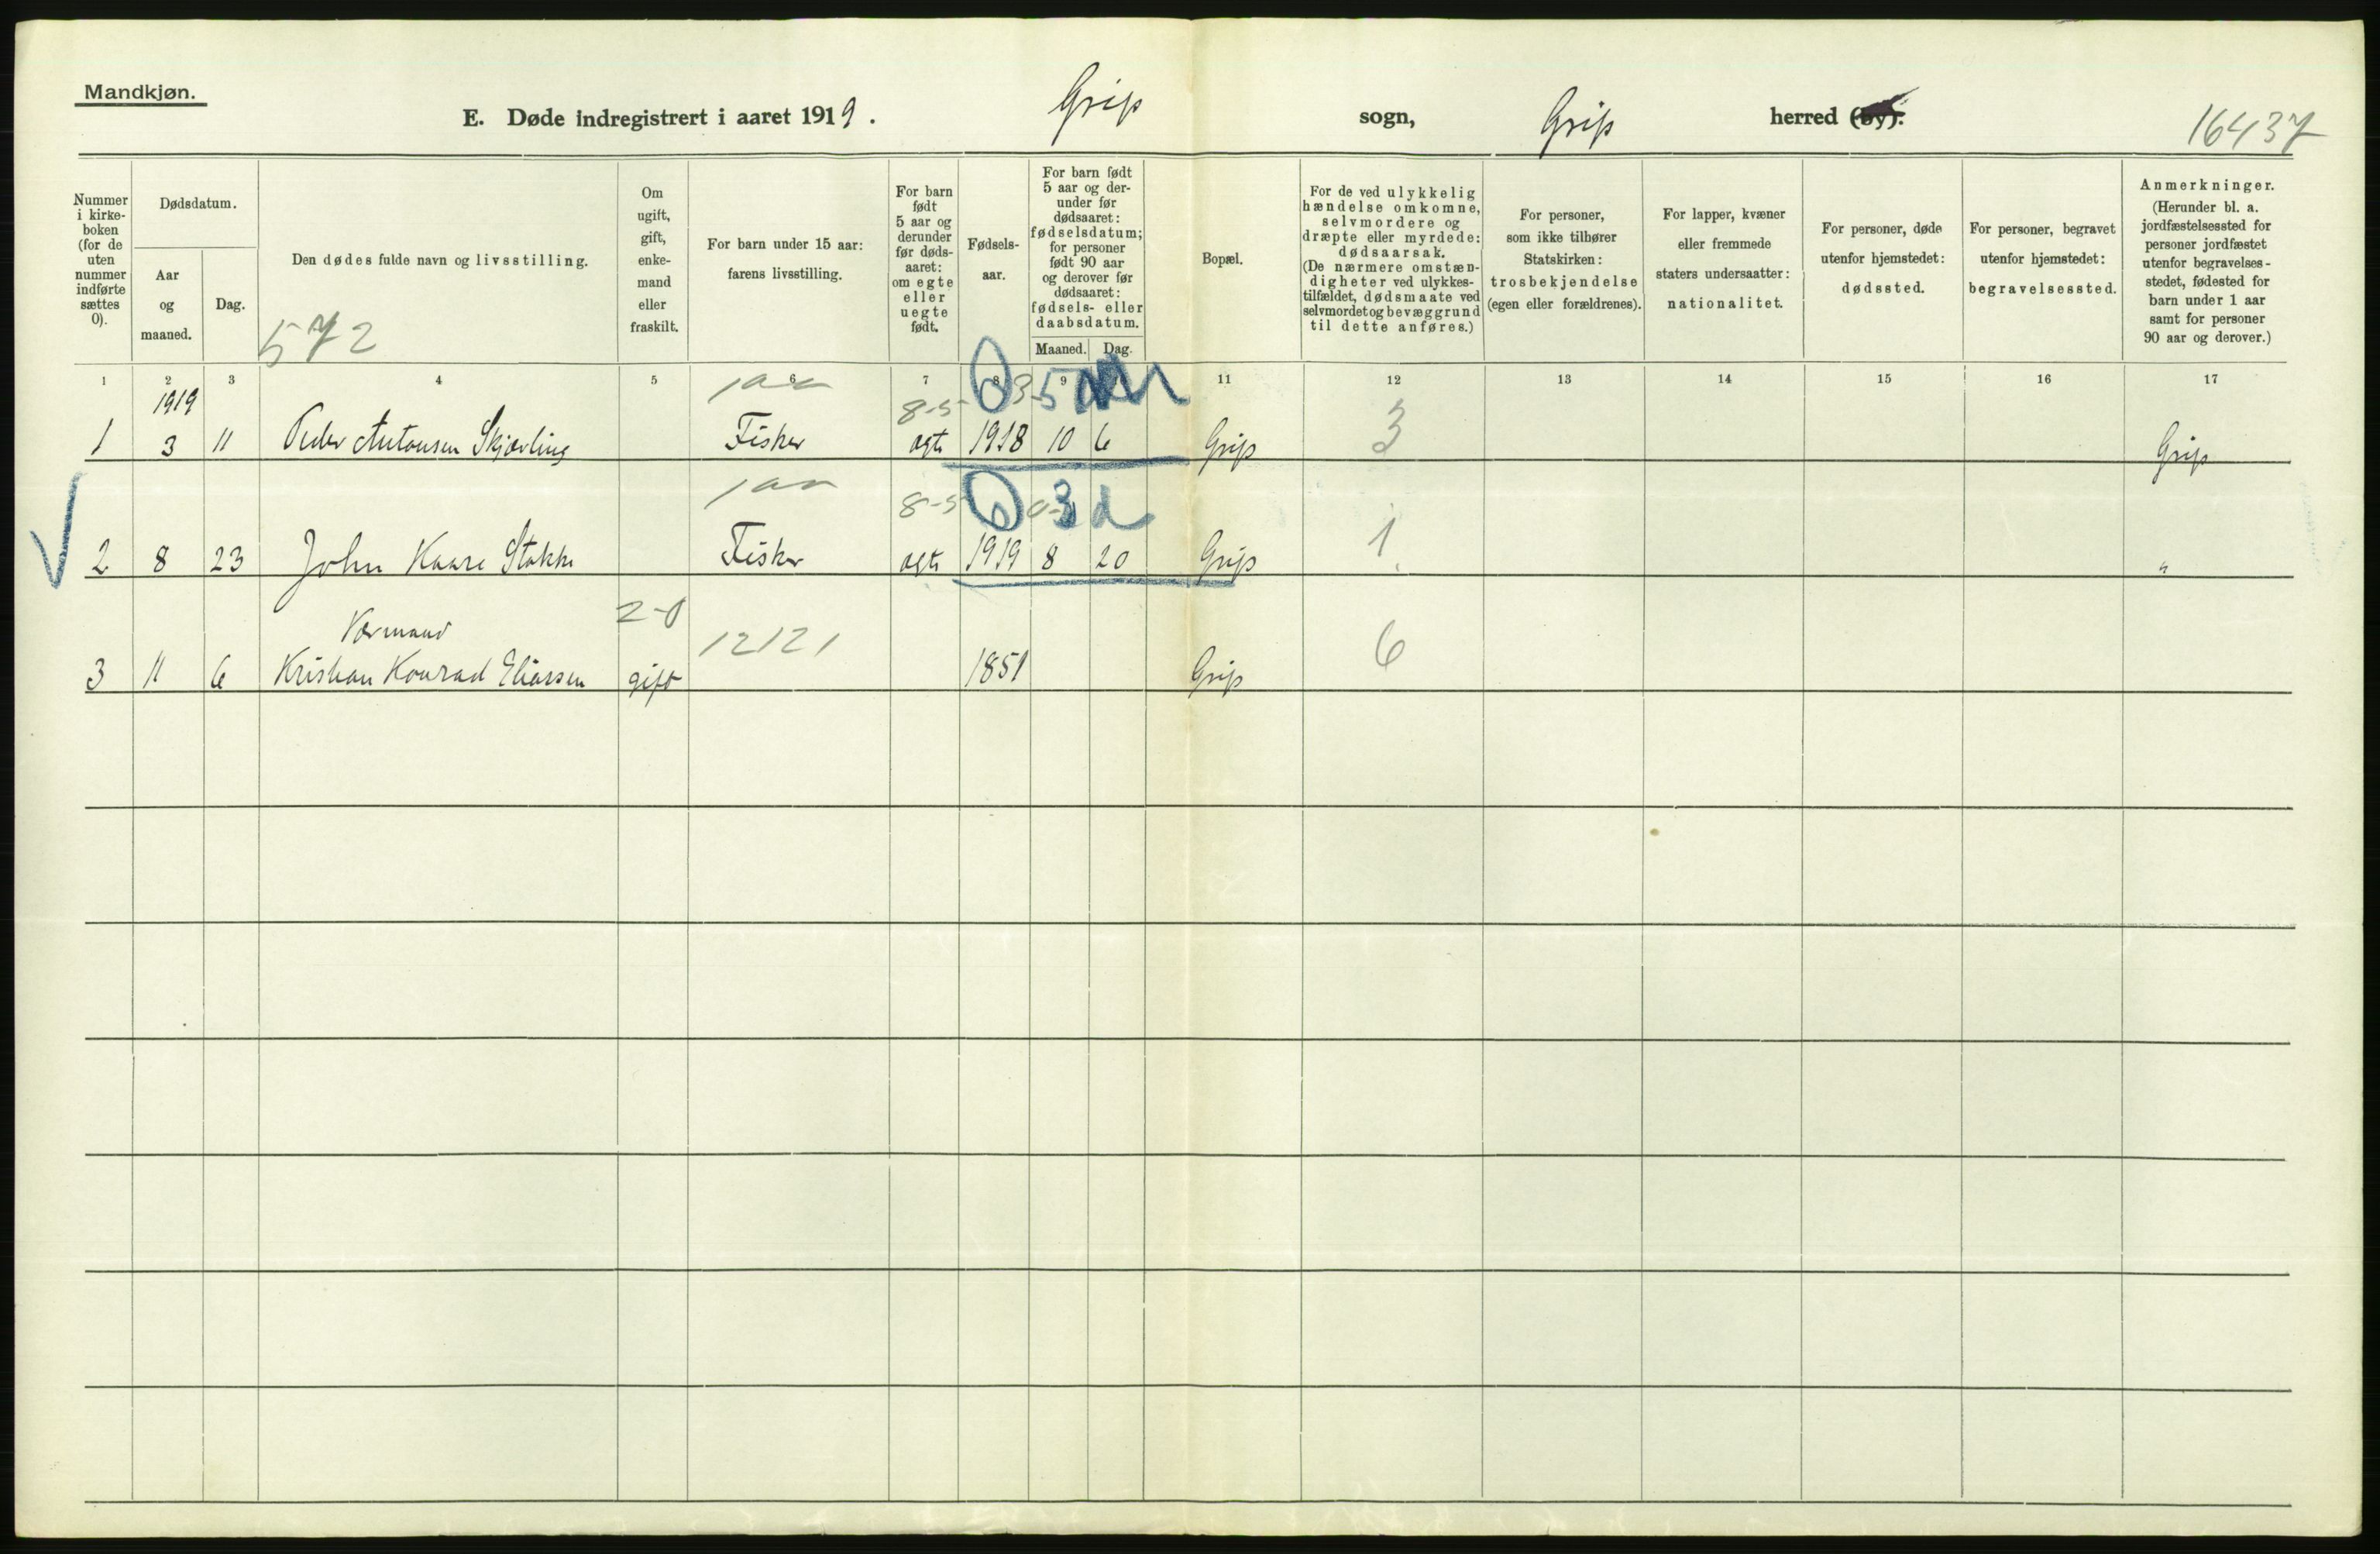 Mandkjøn.
E. Døde indregistrert i aaret 1919. Grip sogn, Grip herred (by).
16437
Nummer i kirke-boken (for de uten nummer indførte sættes 0).
Dødsdatum.
Aar og maaned.
Dag.
Den dødes fulde navn og livsstilling.
572
Om ugift, gift, enke-mand eller fraskilt.
For barn under 15 aar: farens livsstilling.
For barn født 5 aar og derunder før døds-aaret: om egte eller uegte født.
Fødsels-aar.
For barn født 5 aar og der-under før dødsaaret: fødselsdatum; for personer født 90 aar og derover før dødsaaret: fødsels- eller daabsdatum.
Maaned. Dag.
Bopæl.
For de ved ulykkelig hændelse omkomne, selvmordere og dræpte eller myrdede: dødsaarsak. (De nærmere omstæn-digheter ved ulykkes-tilfældet, dødsmaate ved selvmordet og bevæggrund til dette anføres.)
For personer, som ikke tilhører Statskirken: trosbekjendelse (egen eller forældrenes).
For lapper, kvæner eller fremmede staters undersaatter: nationalitet.
For personer, døde utenfor hjemstedet: dødssted.
For personer, begravet utenfor hjemstedet: begravelsessted.
Anmerkninger. (Herunder bl. a. jordfæstelsessted for personer jordfæstet utenfor begravelses-stedet, fødested for barn under 1 aar samt for personer 90 aar og derover.)
1 2 3 4 5 6 7 8 9 11 12 13 14 15 16 17
1919
8-5 5
1 3 11 Peder Antonsen Skjævling Fisker egte 1918 10 6 Grip 3 Grip
8-5 3 d
2 8 23 John Kaare Stokke Fisker egte 1919 8 20 Grip 1 "
Værmand 2-0 12121
3 11 6 Kristian Konrad Eliassen gift 1851 Grip 6